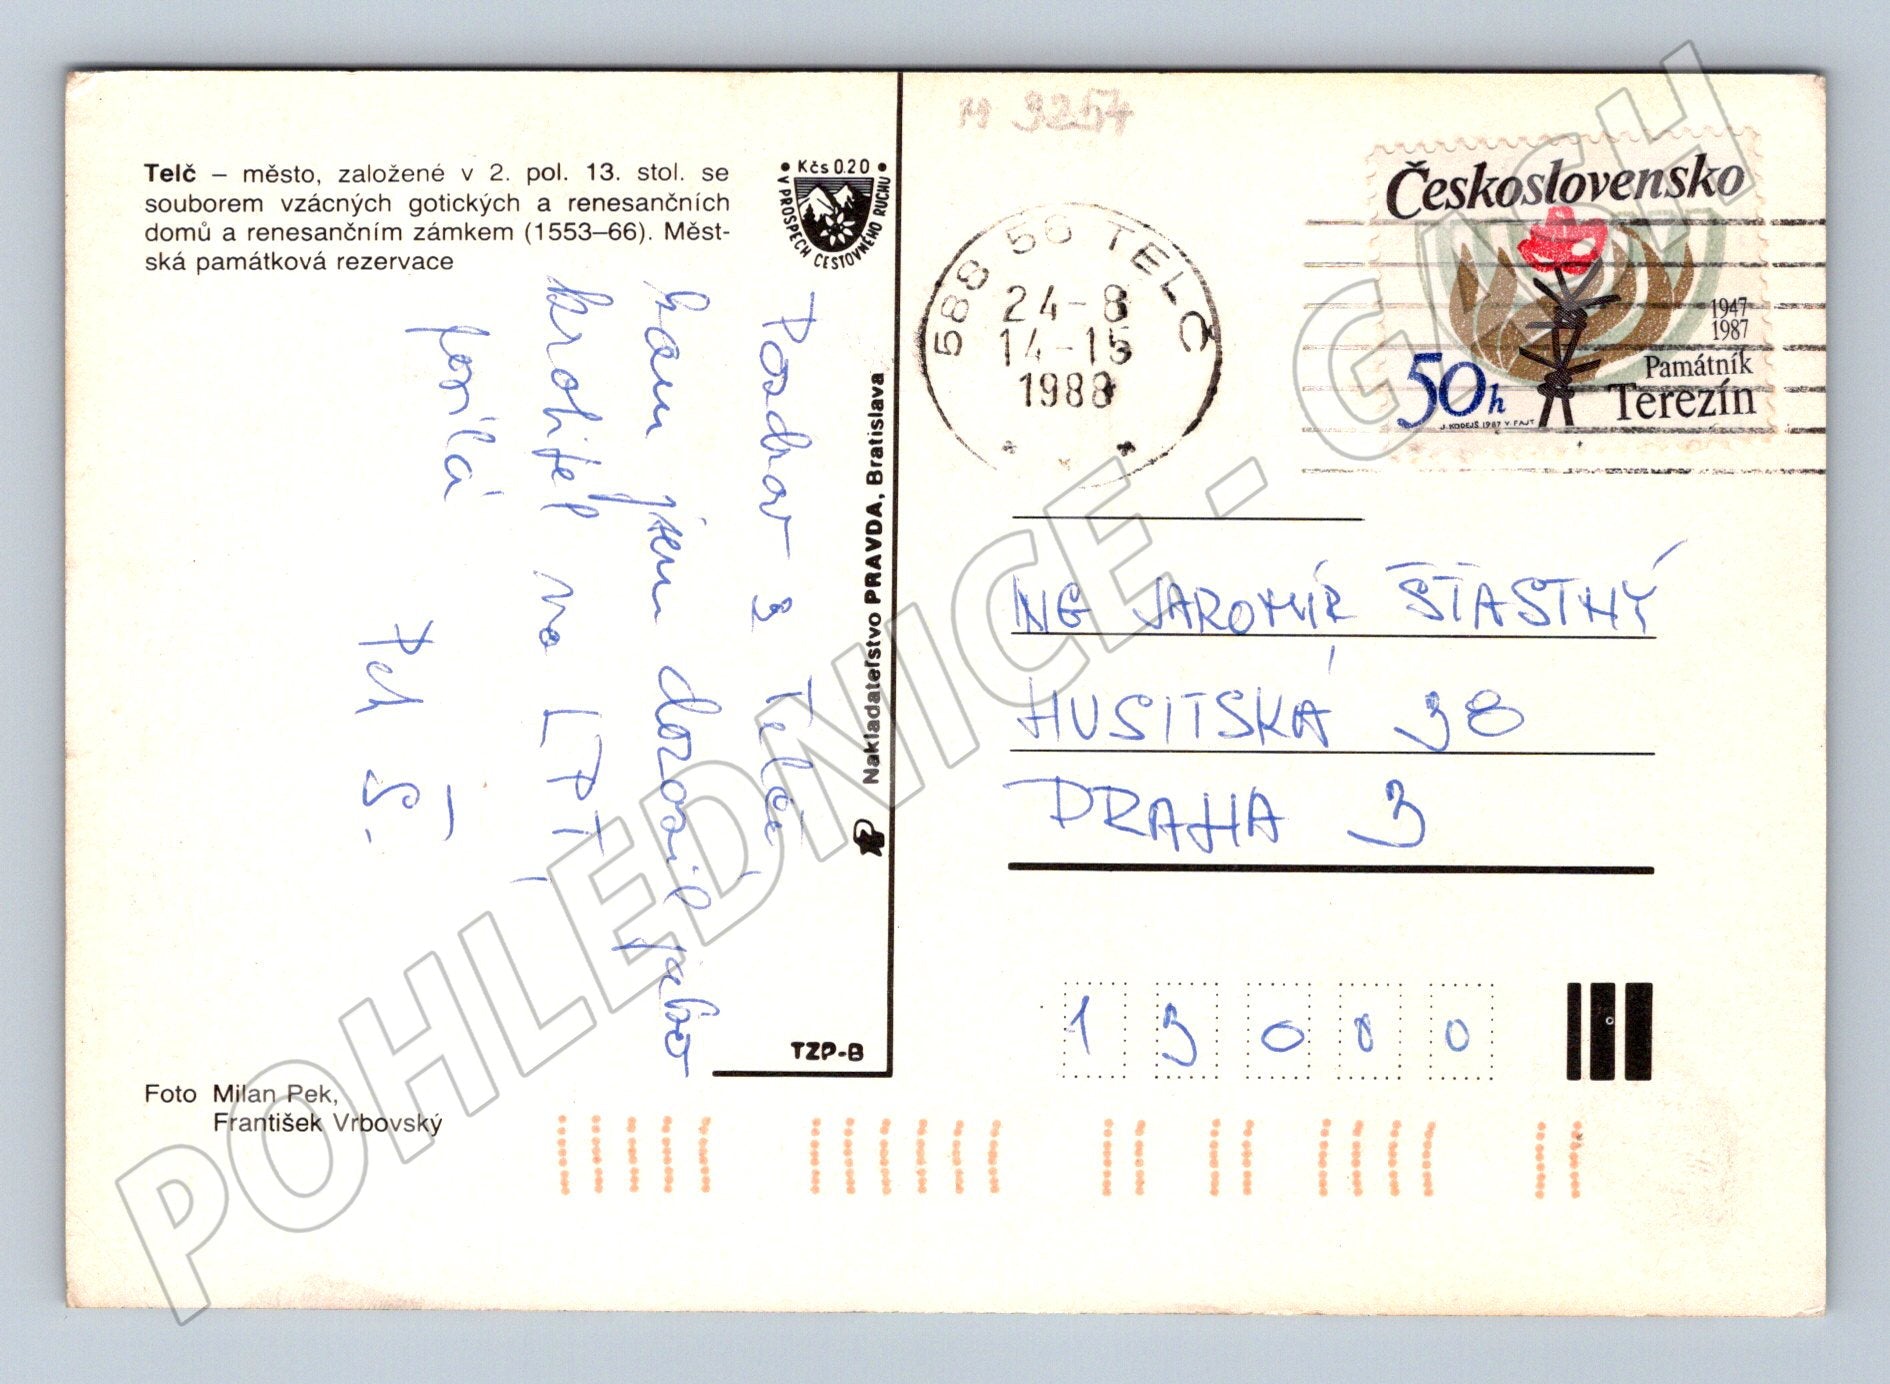 Telč – město, založené v 2. pol. 13. stol. se
souborem vzácných gotických a renesančních
domů a renesančním zámkem (1553–66). Měst-
ská památková rezervace
• Kčs 0.20 •
V PROSPĚCH CESTOVNÉHO RUCHU
Pozdrav z Telče
kam jsem dorazil jako
krotitel na LPT
posílá
Petr Š.
Foto Milan Pek,
František Vrbovský
Nakladateľstvo PRAVDA, Bratislava
TZP-B
M 9257
588 56 TELČ
24-8
14-15
1988
Československo
1947
1987
Památník
Terezín
50h
J. KODEJŠ 1987 V. FAJT
ING JAROMÍR ŠŤASTNÝ
HUSITSKÁ 38
PRAHA 3
13000
POHLEDNICE - GMCH